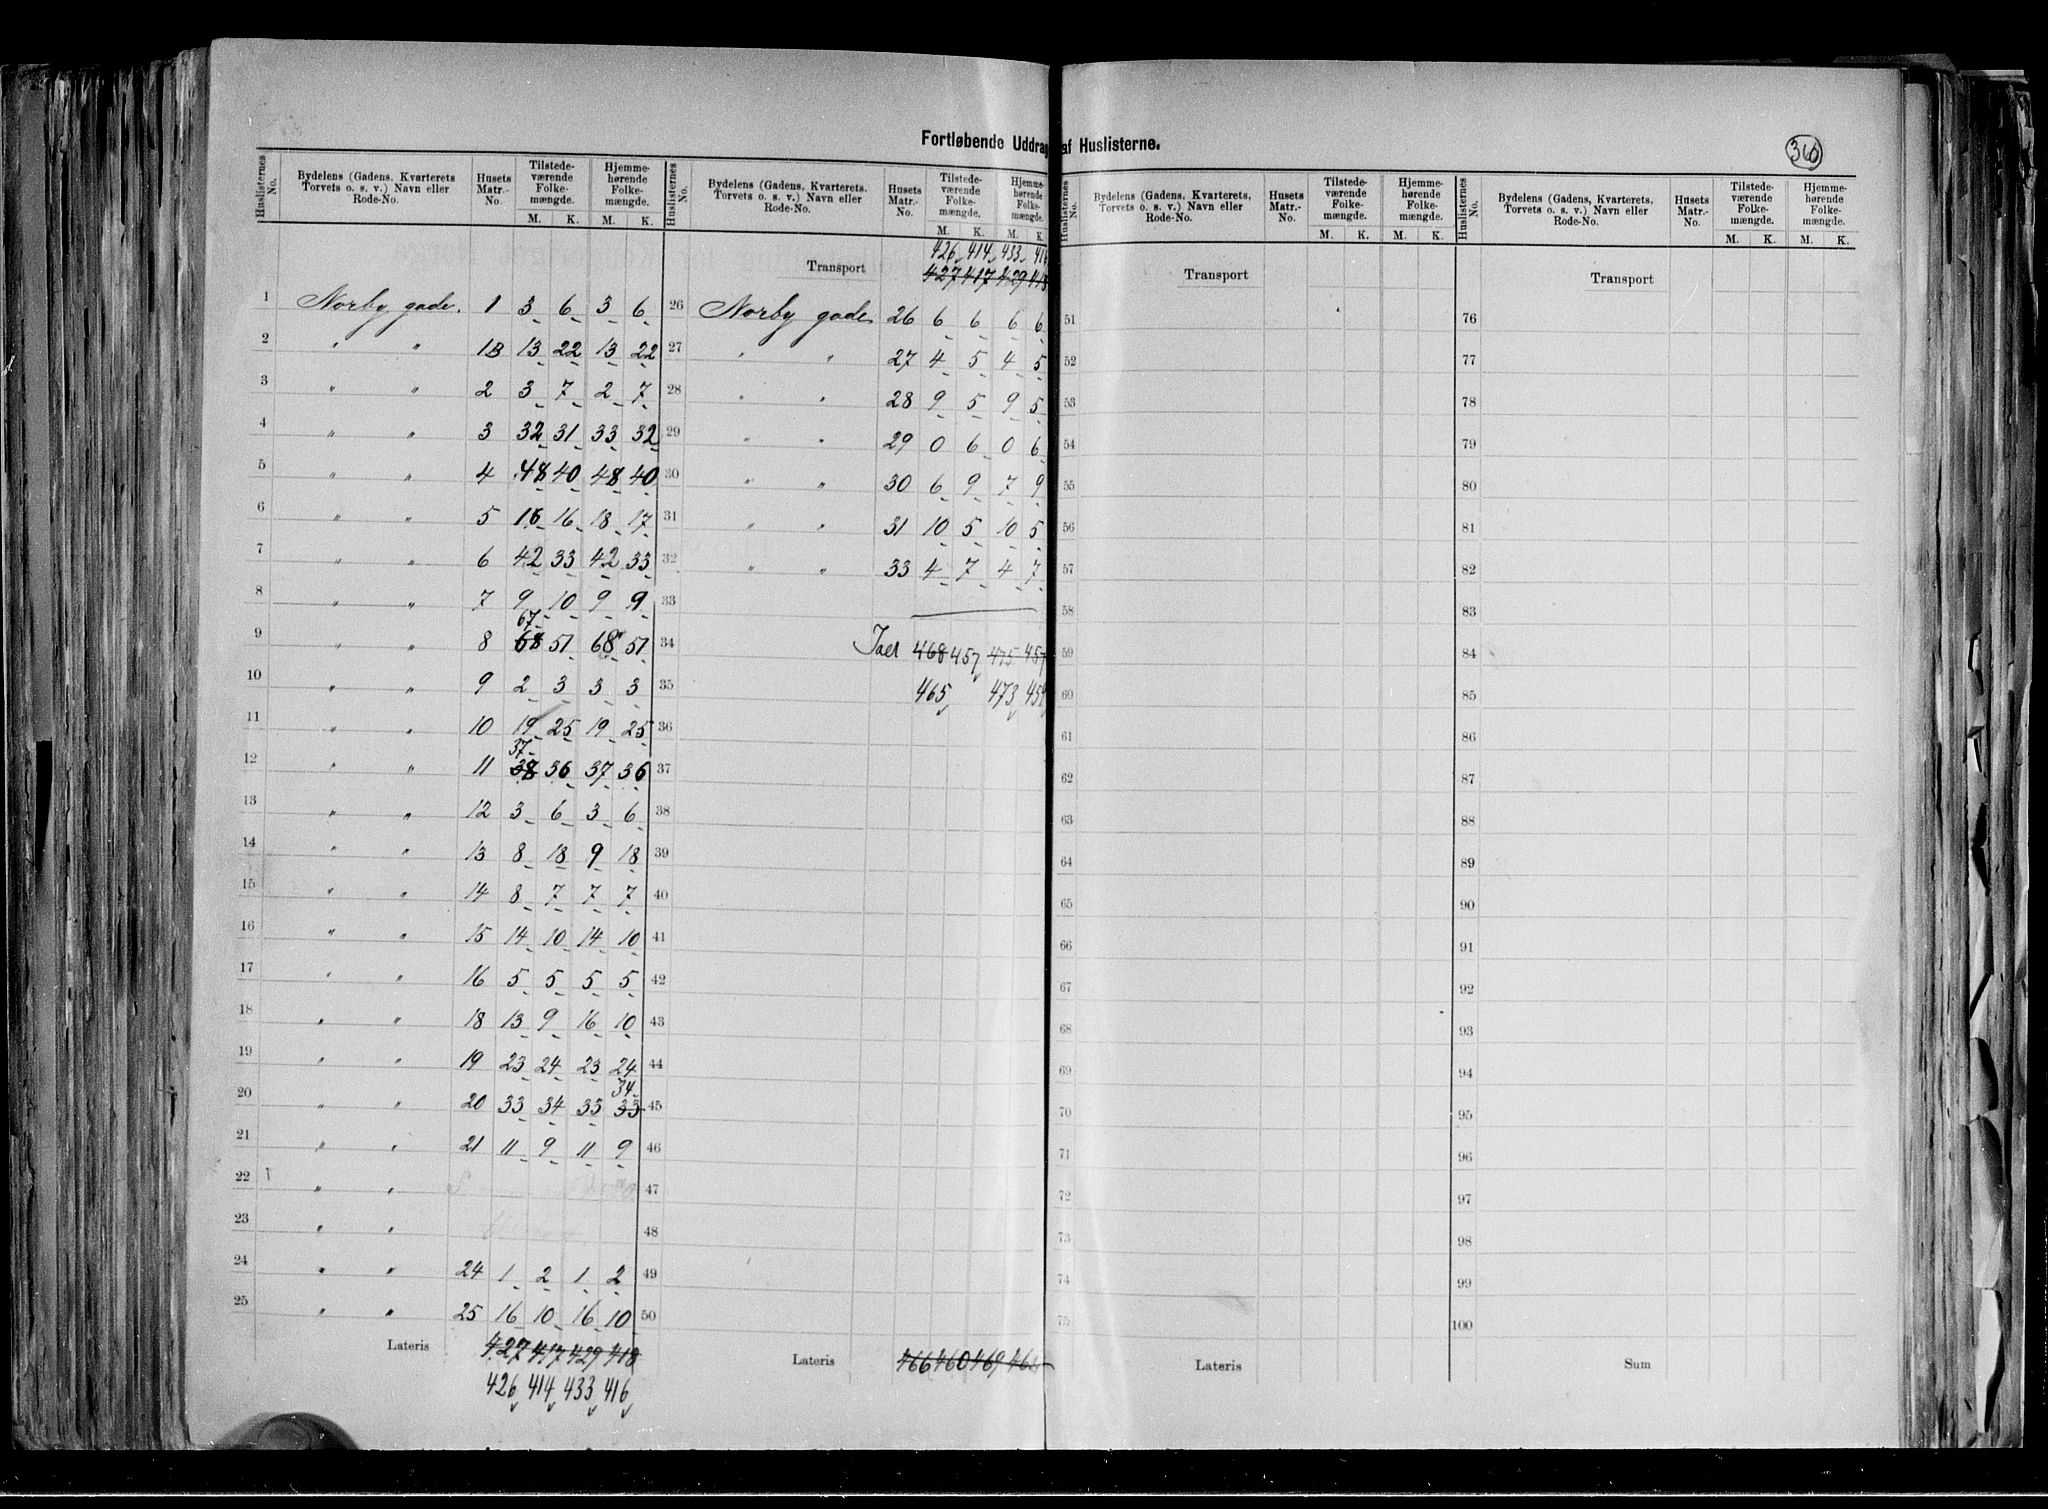 Fortløbende Uddrag af Huslisterne.
360
Huslisternes No. | Bydelens (Gadens, Kvarterets Torvets o. s. v.) Navn eller Rode-No. | Husets Matr.-No. | Tilstedeværende Folkemængde. M. K. | Hjemmehørende Folkemængde. M. K.
1 Norby gade. 1 3 6 3 6
2 " " 1B 13 22 13 22
3 " " 2 3 7 2 7
4 " " 3 32 31 33 32
5 " " 4 48 40 48 40
6 " " 5 16 16 18 17
7 " " 6 42 33 42 33
8 " " 7 9 10 9 9
67
9 " " 8 68 51 68 51
10 " " 9 2 3 3 3
11 " " 10 19 25 19 25
37
12 " " 11 38 36 37 36
13 " " 12 3 6 3 6
14 " " 13 8 18 9 18
15 " " 14 8 7 7 7
16 " " 15 14 10 14 10
17 " " 16 5 5 5 5
18 " " 18 13 9 16 10
19 " " 19 23 24 23 24
34
20 " " 20 33 34 33 33
21 " " 21 11 9 11 9
22 " "
23 " "
24 " " 24 1 2 1 2
25 " " 25 16 10 16 10
Lateris 427 417 429 418
426 414 433 416
Huslisternes No. | Bydelens (Gadens, Kvarterets, Torvets o. s. v.) Navn eller Rode-No. | Husets Matr.-No. | Tilstedeværende Folkemængde. M. K. | Hjemmehørende Folkemængde. M. K.
426 414 433 416
Transport 427 417 429 418
26 Norby gade 26 6 6 6 6
27 " " 27 4 5 4 5
28 " " 28 9 5 9 5
29 " " 29 0 6 0 6
30 " " 30 6 9 7 9
31 " " 31 10 5 10 5
32 " " 33 4 7 4 7
33
34 468 457 475 457
35 465 473 459
36
37
38
39
40
41
42
43
44
45
46
47
48
49
50
Lateris 466 460 469
Huslisternes No. | Bydelens (Gadens, Kvarterets, Torvets o. s. v.) Navn eller Rode-No. | Husets Matr.-No. | Tilstedeværende Folkemængde. M. K. | Hjemmehørende Folkemængde. M. K.
Transport
51
52
53
54
55
56
57
58
59
60
61
62
63
64
65
66
67
68
69
70
71
72
73
74
75
Lateris
Huslisternes No. | Bydelens (Gadens, Kvarterets, Torvets o. s. v.) Navn eller Rode-No. | Husets Matr.-No. | Tilstedeværende Folkemængde. M. K. | Hjemmehørende Folkemængde. M. K.
Transport
76
77
78
79
80
81
82
83
84
85
86
87
88
89
90
91
92
93
94
95
96
97
98
99
100
Sum